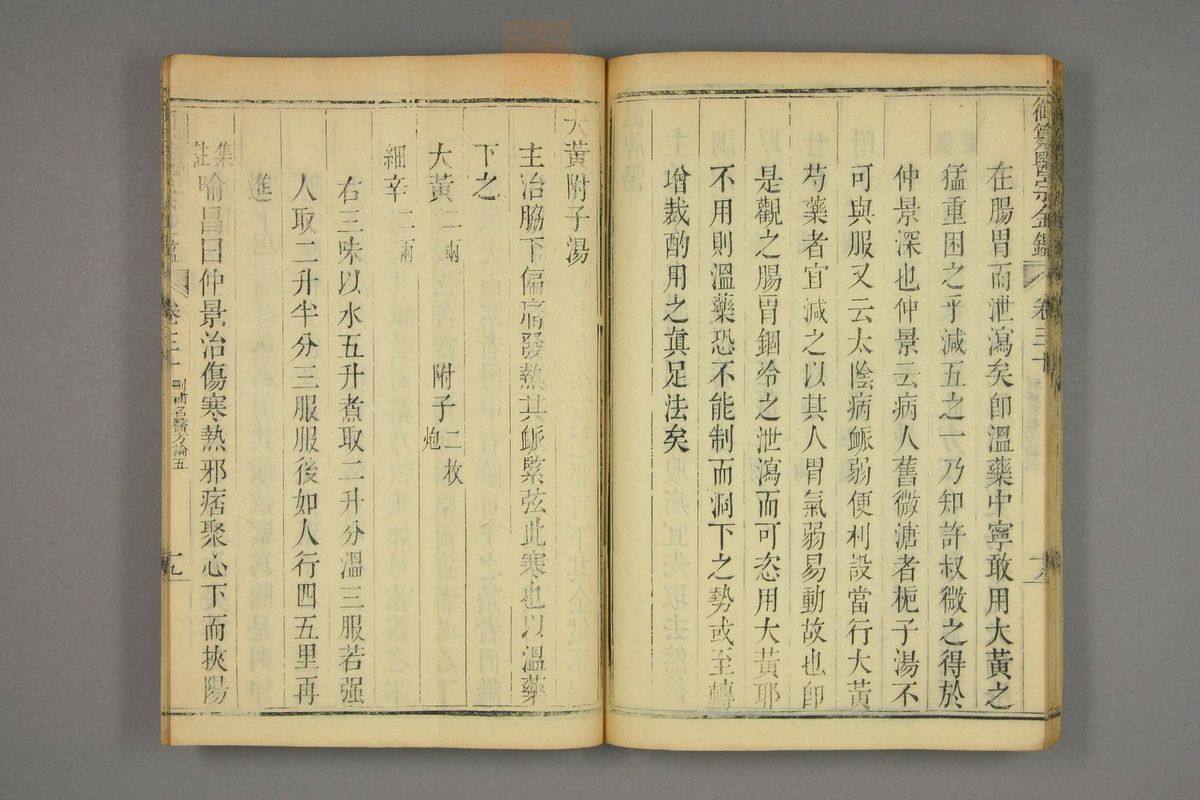 御纂醫宗金鑑 卷三十
在腸胃而泄瀉矣卽溫藥中寧敢用大黃之
猛重困之乎減五之一乃知許叔微之得於
仲景深也仲景云病人舊微溏者梔子湯不
可與服又云太陰病脈弱便利設當行大黃
芍藥者宜減之以其人胃氣弱易動故也卽
是觀之腸胃錮冷之泄瀉而可恣用大黃耶
不用則溫藥恐不能制而洞下之勢或至轉
增裁酌用之眞足法矣
大黃附子湯
主治脇下偏痛發熱其脈緊弦此寒也以溫藥
下之
大黃二兩 附子二枚炮
細辛二兩
右三味以水五升煮取二升分溫三服若强
人取二升半分三服服後如人行四五里再
進
集註喻昌曰仲景治傷寒熱邪痞聚心下而挾陽
卷三十 刪補名醫方論五 十九